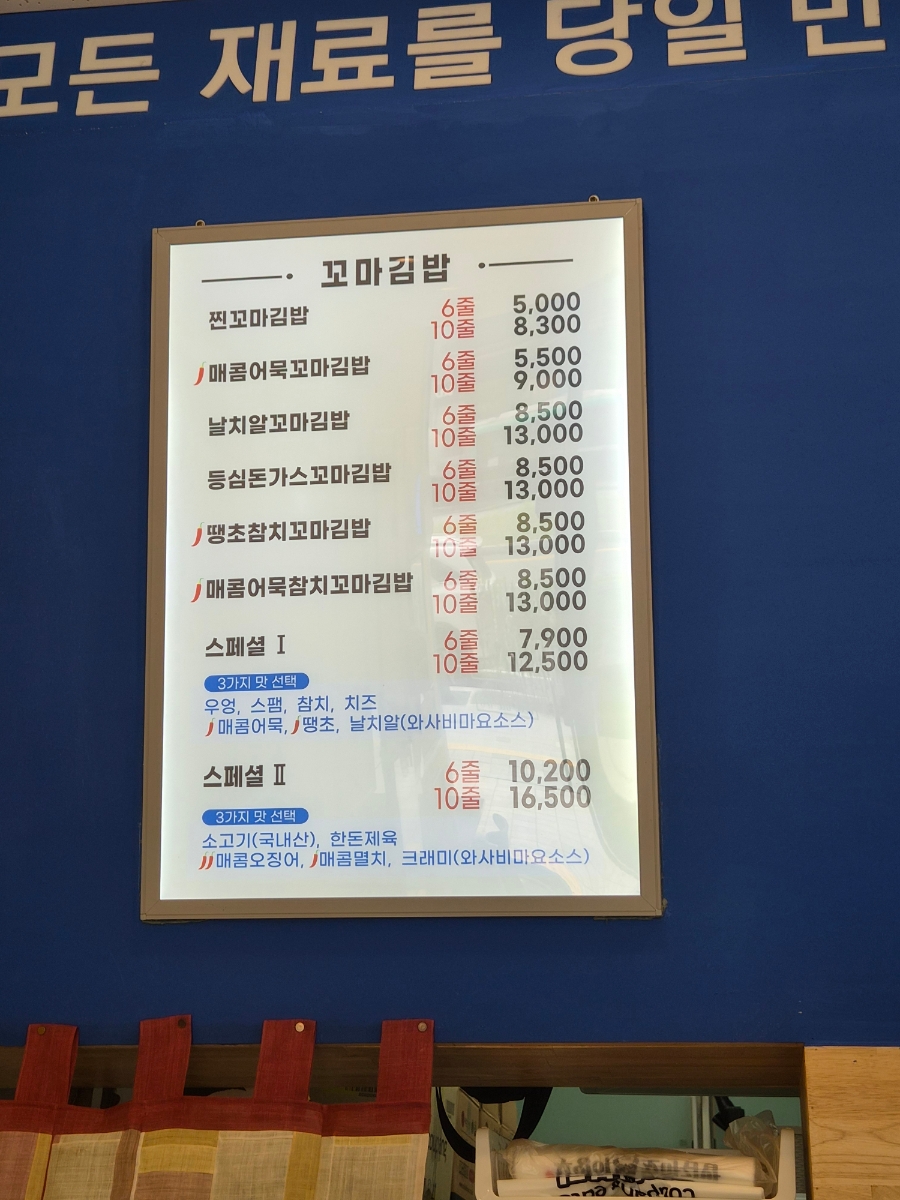 모든 재료를 당일
꼬마김밥
찐꼬마김밥 6줄 5,000
10줄 8,300
매콤어묵꼬마김밥 6줄 5,500
10줄 9,000
날치알꼬마김밥 6줄 8,500
10줄 13,000
등심돈가스꼬마김밥 6줄 8,500
10줄 13,000
땡초참치꼬마김밥 6줄 8,500
10줄 13,000
매콤어묵참치꼬마김밥 6줄 8,500
10줄 13,000
스페셜 Ⅰ 6줄 7,900
10줄 12,500
3가지 맛 선택
우엉, 스팸, 참치, 치즈
매콤어묵, 땡초, 날치알(와사비마요소스)
스페셜 Ⅱ 6줄 10,200
10줄 16,500
3가지 맛 선택
소고기(국내산), 한돈제육
매콤오징어, 매콤멸치, 크래미(와사비마요소스)